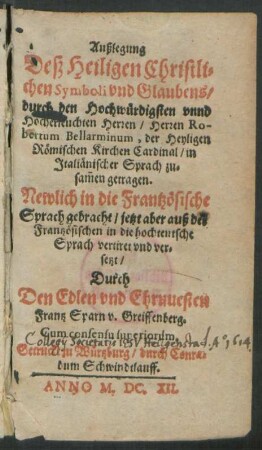 Außlegung
Deß Heiligen Christli-
chen Symboli vnd Glaubens/
durch den Hochwürdigsten vnnd
Hocherleuchten Herren / Herren Ro-
bertum Bellarminum, der Heyligen
Römischen Kirchen Cardinal / in
Italiänischer Sprach zu-
sam̃en getragen.
Newlich in die Frantzösische
Sprach gebracht / jetzt aber auß der
Frantzösischen in die hochteutsche
Sprach vertirt vnd ver-
setzt /
Durch
Den Edlen vnd Ehrnuesten
Frantz Sparn v. Greiffenberg.
Cum consensu superiorum.
Collegij Societatis IESV Heiligenstad. Aº 1614
Getruckt zu Würtzburg / durch Conra-
dum Schwindtlauff.
ANNO M. DC. XII.